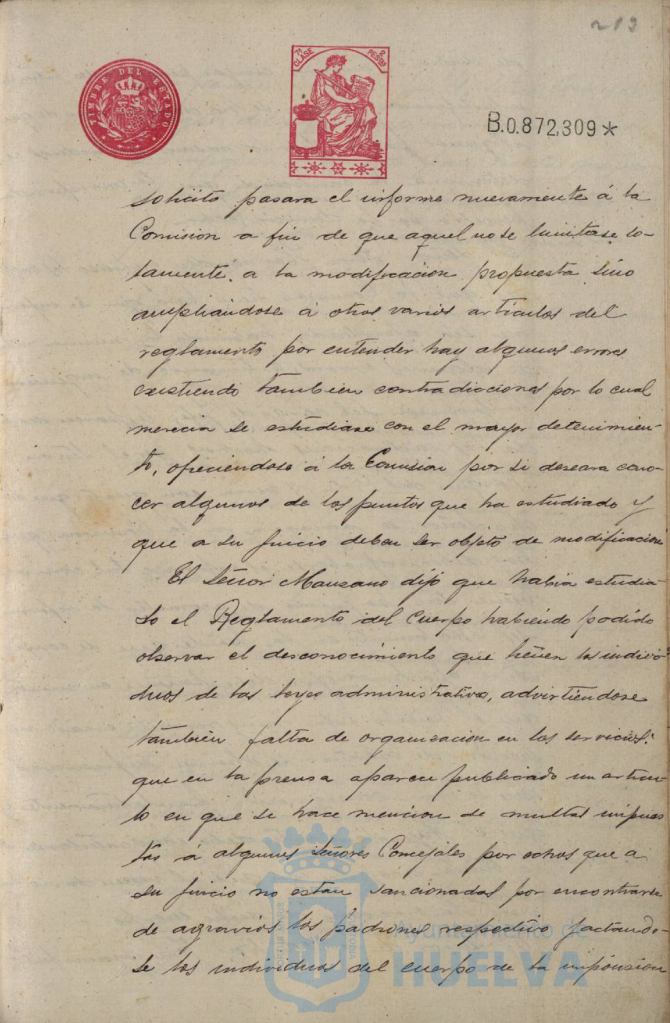 213
TIMBRE DEL ESTADO
7ª CLASE 2 PESE
B.0.872,309*
solicito pasara el informe nuevamente á la
Comision a fin de que aquel no se limitase so-
lamente a la modificacion propuesta sino
ampliandose á otros varios articulos del
reglamento por entender hay algunos errores
existiendo tambien contradicciones por lo cual
merecia se estudiase con el mayor detenimien-
to, ofreciendose á la Comision por si deseara cono-
cer algunos de los puntos que ha estudiado y
que a su juicio deben ser objeto de modificacion
El Señor Manzano dijo que habia estudia-
do el Reglamento del Cuerpo habiendo podido
observar el desconocimiento que tienen los indivi-
duos de las leyes administrativas, advirtiendose
tambien falta de organizacion en los servicios:
que en la prensa aparece publicado un articu-
lo en que se hace mencion de multas impues
tas á algunos Señores Concejales por echos que a
su juicio no estan sancionados por encontrarse
de agravios los padrones respectivo jactando-
se los individuos del cuerpo de la imposicion
Ayuntamiento de
HUELVA